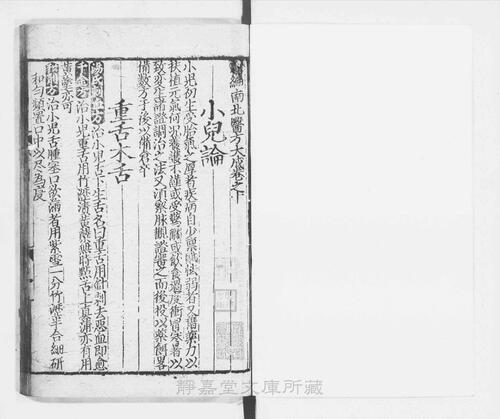 南北醫方大成卷之下
小兒論
小兒初生受胎氣之厚者疾病自少稟賦怯弱者又藉藥力以
扶植元氣何況襁褓不謹或受驚觸或飲食過度衝冒寒暑以
致疾生諸證調治之法又須察脉觀證審之而後投以藥劑畧
備數方于後以備倉卒
重舌木舌
方治小兒舌下生舌名曰重舌用針刺去惡血即愈
方治小兒重舌用竹瀝漬黃蘗無時點舌上真蒲亦有用
黃蘗亦可
方治小兒舌腫塞口欲滿者用紫雪一分竹瀝半合細研
和勻頻置口中以尽為度
靜嘉堂文庫所藏